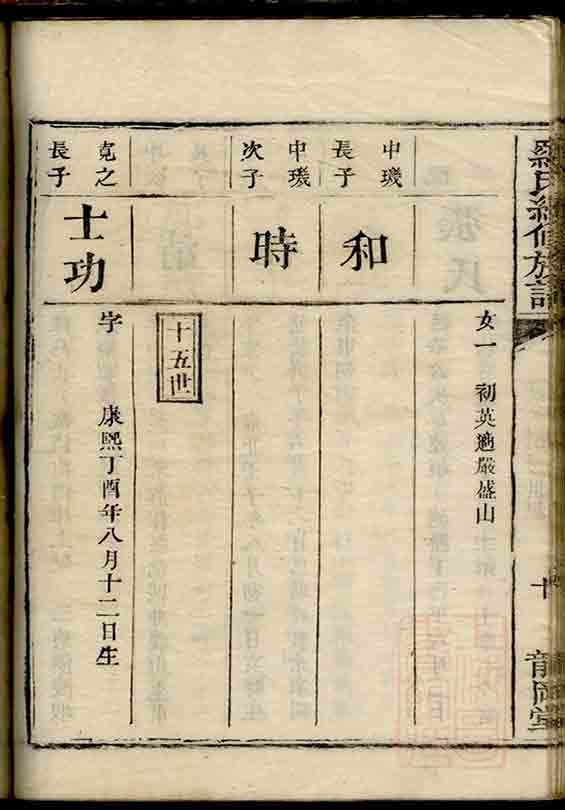 羅氏續修族譜
十
龍岡堂
女一 初英適嚴盛山
中璣
長子
和
中璣
次子
時
十五世
克之
長子
士功
字 康熙丁酉年八月十二日生